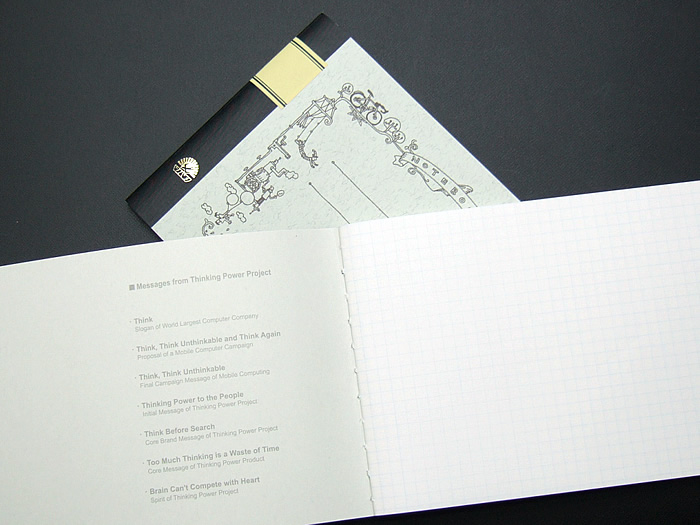 NOTEBO
■ Messages from Thinking Power Project
· Think
Slogan of World Largest Computer Company
· Think, Think Unthinkable and Think Again
Proposal of a Mobile Computer Campaign
· Think, Think Unthinkable
Final Campaign Message of Mobile Computing
· Thinking Power to the People
Initial Message of Thinking Power Project
· Think Before Search
Core Brand Message of Thinking Power Project
· Too Much Thinking is a Waste of Time
Core Message of Thinking Power Product
· Brain Can't Compete with Heart
Spirit of Thinking Power Project